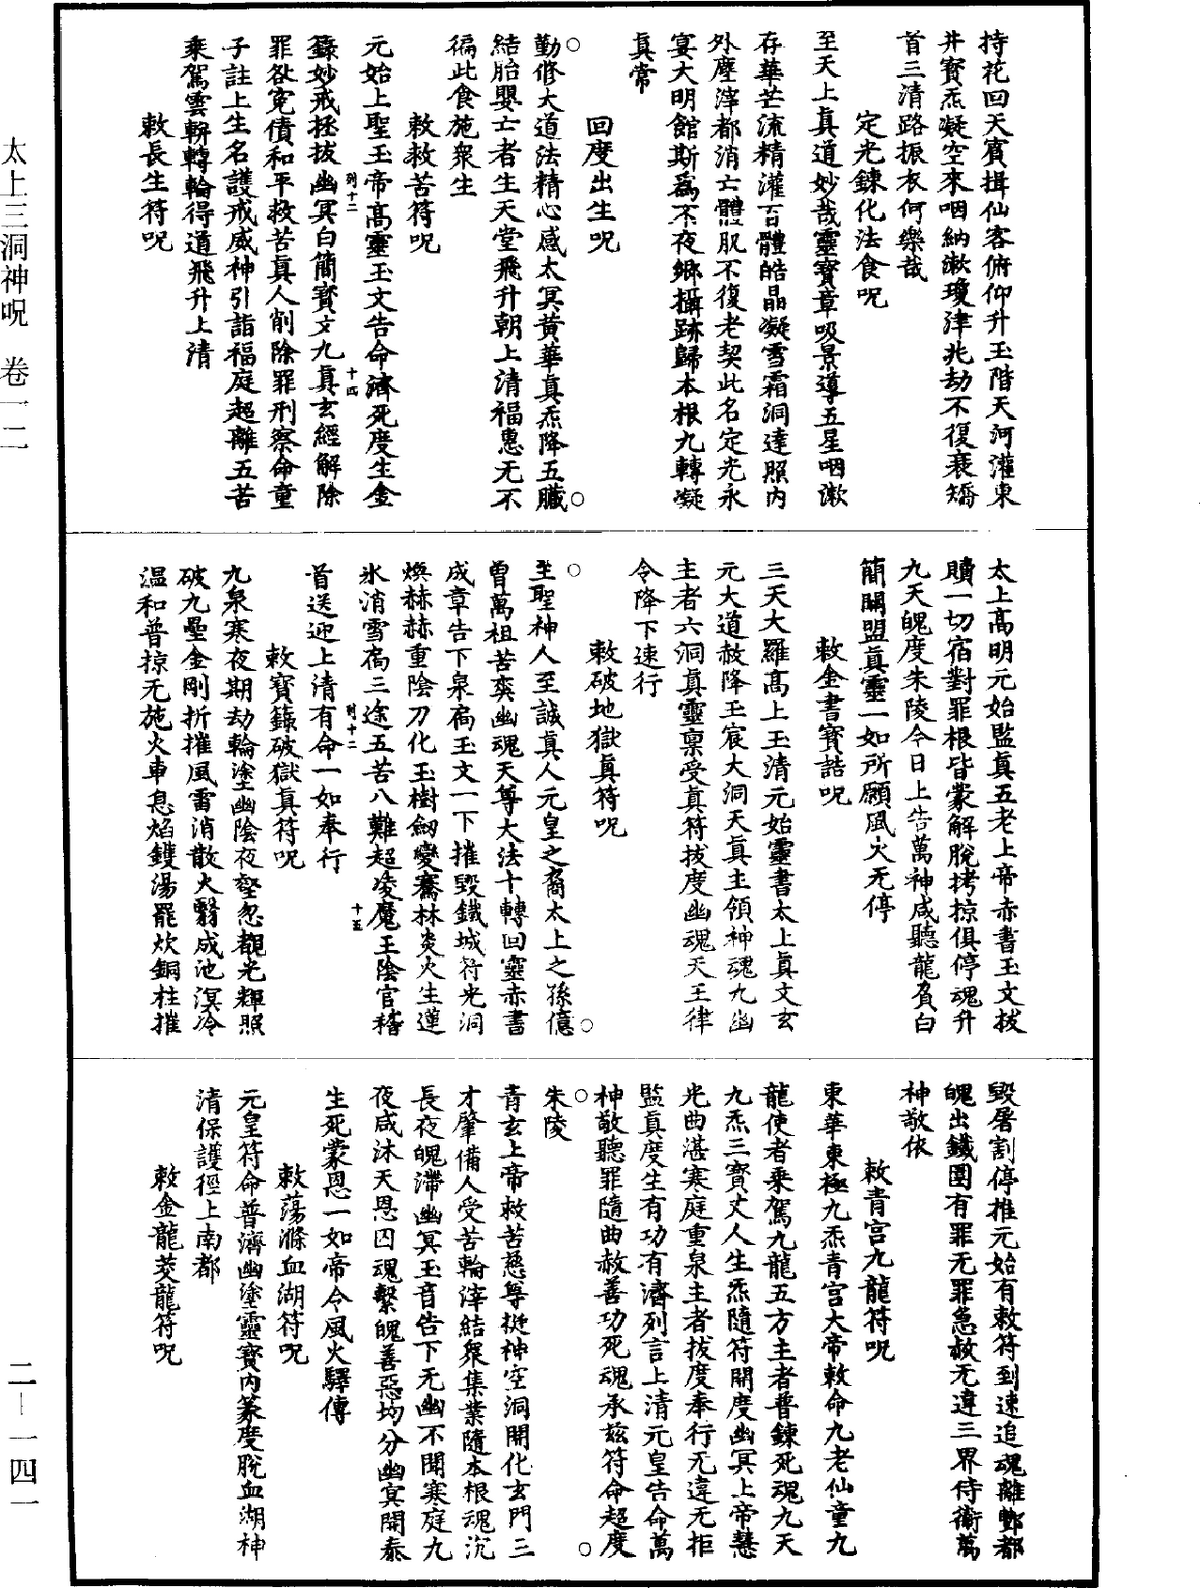 持花回天賓揖仙客俯仰升玉階天河灌東
井寶炁凝空來咽納漱瓊津兆劫不復衰矯
首三清路振衣何樂哉
定光鍊化法食呪
至天上真道妙哉靈寶章吸景導五星咽漱
存華芒流精灌百體皓晶凝雪霜洞達照內
外塵滓都消亡體肌不復老契此名定光永
宴大明館斯為不夜鄉攝跡歸本根九轉凝
真常
回度出生呪
○勤修大道法精心感太冥黃華真炁降五臟○
結胎嬰亡者生天堂飛升朝上清福惠无不
徧此食施眾生
敕救苦符呪
元始上聖玉帝高靈玉文告命濟死度生金
列十二 十四
籙妙戒拯拔幽冥白簡寶文九真玄經解除
罪欲冤債和平救苦真人削除罪刑察命童
子註上生名護戒威神引詣福庭超離五苦
乘駕雲軿轉輪得道飛升上清
敕長生符呪
太上高明元始監真五老上帝赤書玉文拔
贖一切宿對罪根皆蒙解脫拷掠俱停魂升
九天魄度朱陵今日上告萬神咸聽龍負白
簡關盟真靈一如所願風火无停
敕金書寶誥呪
三天大羅高上玉清元始靈書太上真文玄
元大道赦降玉宸大洞天真主領神魂九幽
主者六洞真靈禀受真符拔度幽魂天王律
令降下速行
敕破地獄真符呪
○至聖神人至誠真人元皇之裔太上之孫億○
曾萬祖苦爽幽魂天尊大法十轉回靈赤書
成章告下泉扃玉文一下摧毀鐵城符光洞
煥赫赫重陰刀化玉樹劒變騫林炎火生蓮
氷消雪扃三途五苦八難超凌魔王陰官稽
列十二 十五
首送迎上清有命一如奉行
敕寶籙破獄真符呪
九泉寒夜期劫輪塗幽陰夜壑忽覩光輝照
破九壘金剛折摧風雷消散火翳成池溟冷
温和普掠无施火車息焰鑊湯罷炊銅柱摧
毀屠割停推元始有敕符到速追魂離酆都
魄出鐵圍有罪无罪急赦无違三界侍衛萬
神敬依
敕青宮九龍符呪
東華東極九炁青宮大帝敕命九老仙童九
龍使者乘駕九龍五方主者普鍊死魂九天
九炁三寶丈人生炁隨符開度幽冥上帝慧
光曲湛寒庭重泉主者拔度奉行无違无拒
監真度生有功有濟列言上清元皇告命萬
神敬聽罪隨曲赦善功死魂承兹符命超度
○朱陵○
青玄上帝救苦慈尊挺神空洞開化玄門三
才肇備人受苦輪滓結眾集業隨本根魂沉
長夜魄滯幽冥玉音告下无幽不聞寒庭九
夜咸沐天恩囚魂繫魄善惡均分幽㝠開泰
生死蒙恩一如帝令風火驛傳
敕蕩滌血湖符呪
元皇符命普濟幽塗靈寶內篆度脫血湖神
清保護徑上南都
敕金龍茭龍符呪
太上三洞神呪 卷一二
二—一四一